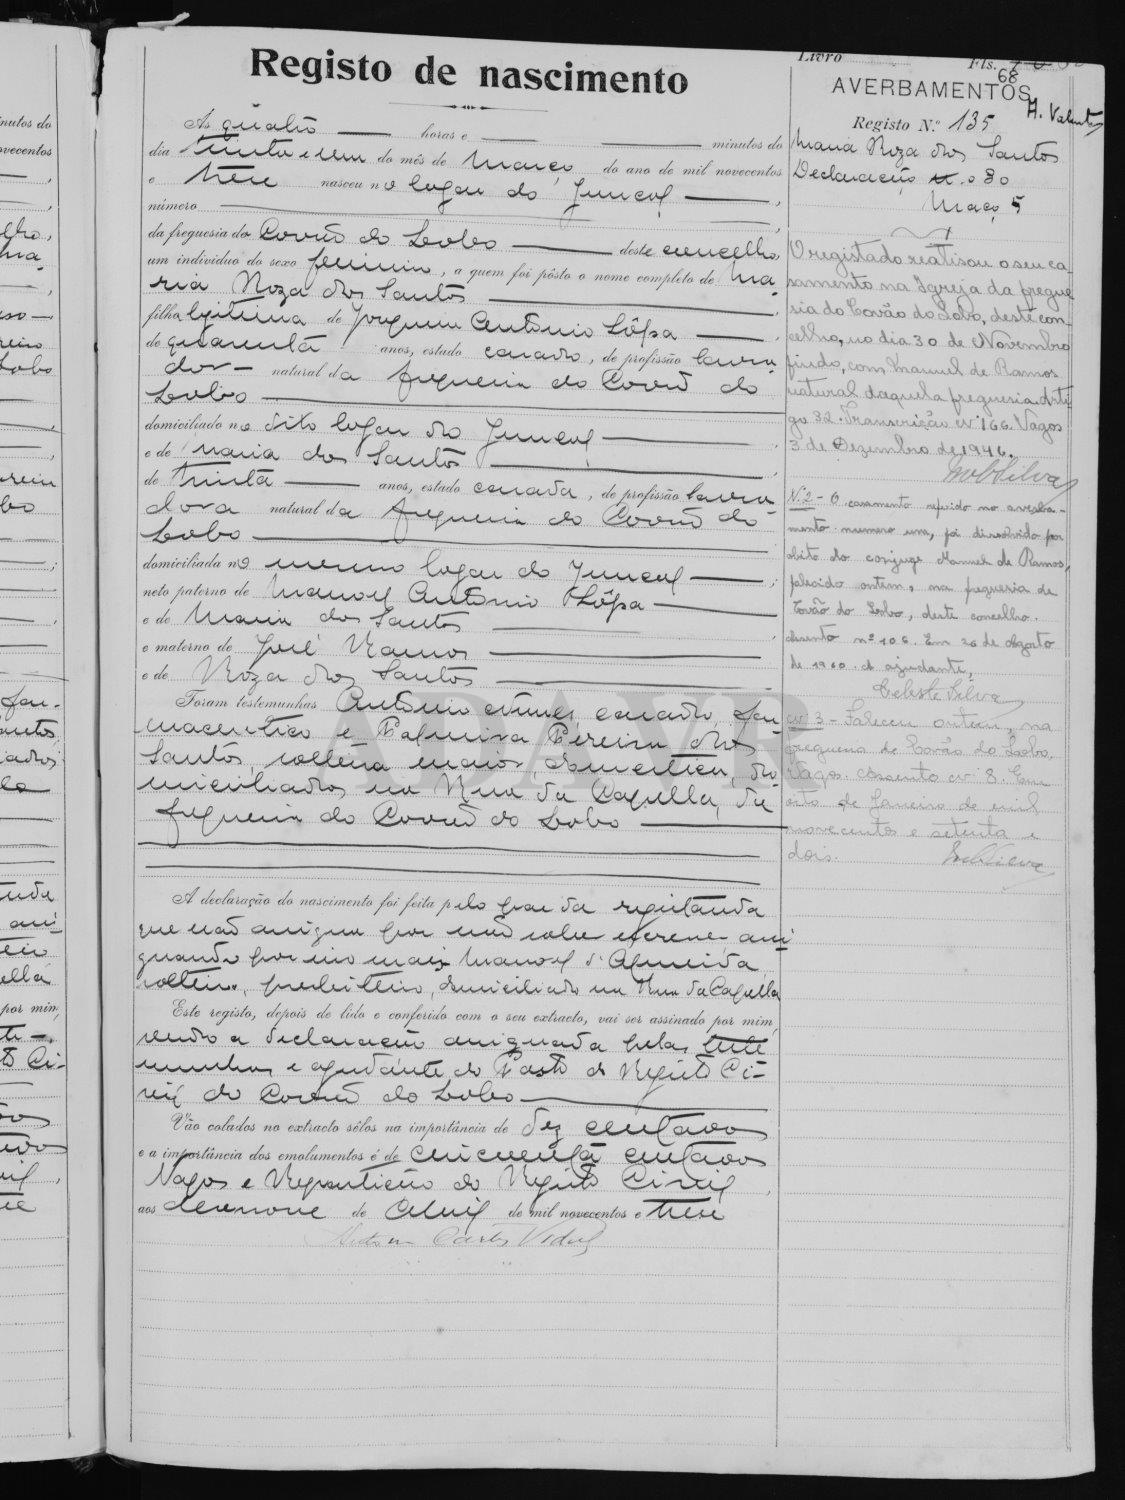 Registo de nascimento
Às quatro horas e minutos do
dia trinta e um do mês de Março do ano de mil novecentos
e treze nasceu no logar do Juncal
número
da freguesia do Covão do Lobo deste concelho,
um indivíduo do sexo feminino, a quem foi pôsto o nome completo de Ma-
ria Roza dos Santos
filha legitima de Joaquim Antonio Lôpa
de quarenta anos, estado casado, de profissão lavra-
dor natural da freguesia do Covão do
Lobo
domiciliado no dito logar do Juncal
e de Maria dos Santos
de trinta anos, estado casada, de profissão lavra-
dora natural da freguesia do Covão do
Lobo
domiciliada no mesmo logar do Juncal
neto paterno de Manoel Antonio Lôpa
e de Maria dos Santos
e materno de José Ramos
e de Roza dos Santos
Foram testemunhas Antonio casado, far-
maceutico e Palmira Pereira dos
Santos, solteira maior, domestica, do-
miciliados na Rua da Capella, da
freguesia do Covão do Lobo
A declaração do nascimento foi feita pelo pae da registanda
que não assigna por não saber escrever assi-
gnando por seu Manoel d'Almeida
solteiro, presbitero, domiciliado na Rua da Capella
Este registo, depois de lido e conferido com o seu extracto, vai ser assinado por mim,
sendo a declaração assignada pelas teste-
munhas e ajudante do Posto do Registo Ci-
vil do Covão do Lobo
Vão colados no extracto sêlos na importância de dez centavos
e a importância dos emolumentos é de cincoenta centavos
Vagos e Repartição do Registo Civil
aos dezenove de Abril de mil novecentos e treze
Carlos Vidal
Livro Fls.
68
AVERBAMENTOS
A. Valente
Registo N.º 135
Maria Roza dos Santos
Declaração n.º 80
Maço 5
O registado realisou o seu ca-
samento na Igreja da fregue-
sia do Covão do Lobo, deste con-
celho, no dia 30 de Novembro
findo, com Manuel de Ramos
natural daquela freguesia. Arti-
go 32. Transcrição nº 166. Vagos
3 de Dezembro de 1946.
Silva
Nº 2 - O casamento referido no averba-
mento numero um, foi dissolvido por
obito do conjuge Manuel de Ramos,
falecido ontem, na freguesia de
Covão do Lobo, deste concelho.
Assento nº 106. Em 26 de Agosto
de 1960. A ajudante,
Celeste Silva
nº 3 - Faleceu ontem, na
freguesia de Covão do Lobo,
Vagos. Assento nº 8. Em
oito de Janeiro de mil
novecentos e setenta e
dois.
ADAVR